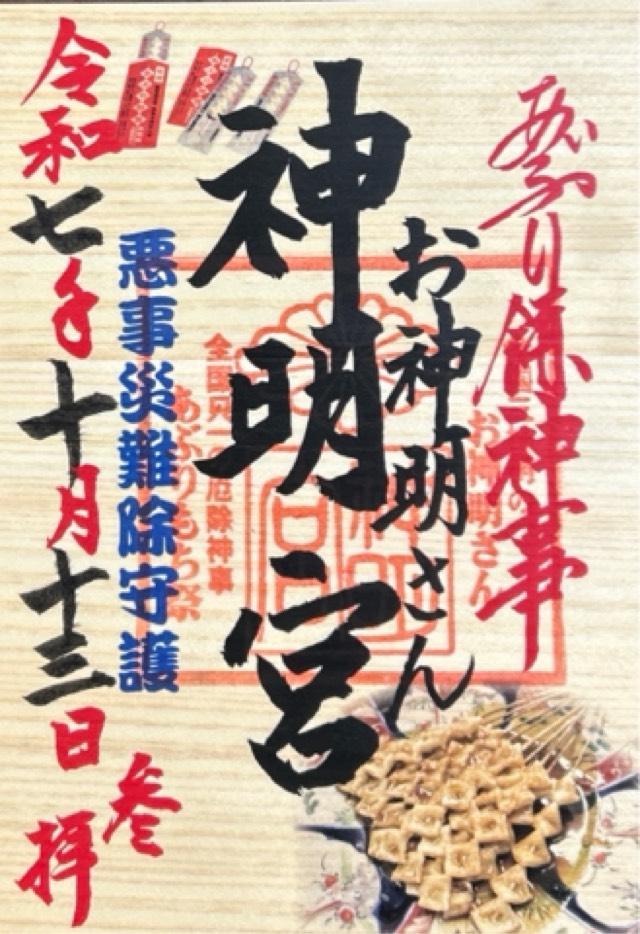 あぶり餅神事
お神明さん
神明宮
全国唯一の厄除神事
あぶりもち祭
悪事災難除守護
令和七年十月十三日
参拝